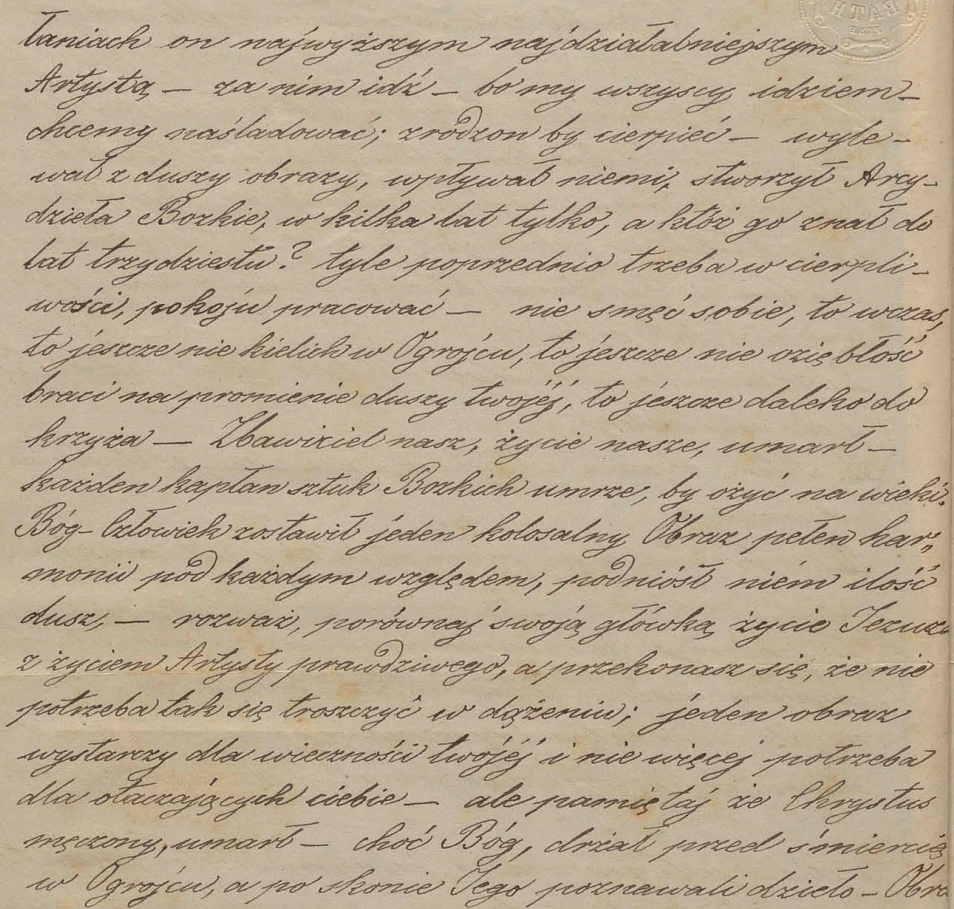 BATH
łaniach on najwyższym najdziałalniejszym
Artystą — za nim idź — bo my wszyscy idziem —
chcemy naśladować; zrodzon by cierpieć — wyle-
wał z duszy obrazy, wpływał niemi, stworzył Arcy-
dzieła Bozkie, w kilka lat tylko, a któż go znał do
lat trzydziestu? tyle poprzednio trzeba w cierpli-
wości, pokoju pracować — nie smęć sobie, to wczas,
to jeszcze nie kielich w Ogrojcu, to jeszcze nie oziębłość
braci na promienie duszy twojéj, to jeszcze daleko do
krzyża — Zbawiciel nasz, życie nasze, umarł —
każden kapłan sztuk Bozkich umrze, by ożyć na wieki.
Bóg-Człowiek zostawił jeden kolosalny Obraz pełen har-
monii pod każdym względem, podniósł niém ilość
dusz, — rozważ, porównaj swoją główką życie Jezusa
z życiem Artysty prawdziwego, a przekonasz się, że nie
potrzeba tak się troszczyć w dążeniu; jeden obraz
wystarczy dla wieczności twojéj i nie więcej potrzeba
dla otaczających ciebie — ale pamiętaj że Chrystus
męczony, umarł — choć Bóg, drżał przed śmiercią
w Ogrojcu, a po skonie Jego poznawali dzieło — Obra